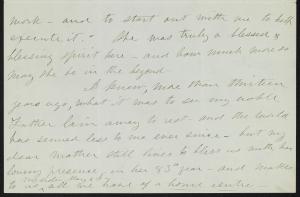 work - and to start out with me to both
execute it." She was truly a blessed &
blessing spirit here - and how much more so
may she be in the beyond
I know, more than thirteen
years ago, what it was to see my noble
Father lain away to rest - and the world
has seemed less to me ever since - but my
dear mother still lives to bless us with her
loving presence in her 83d year - and makes
to us, all we have of a home centre -